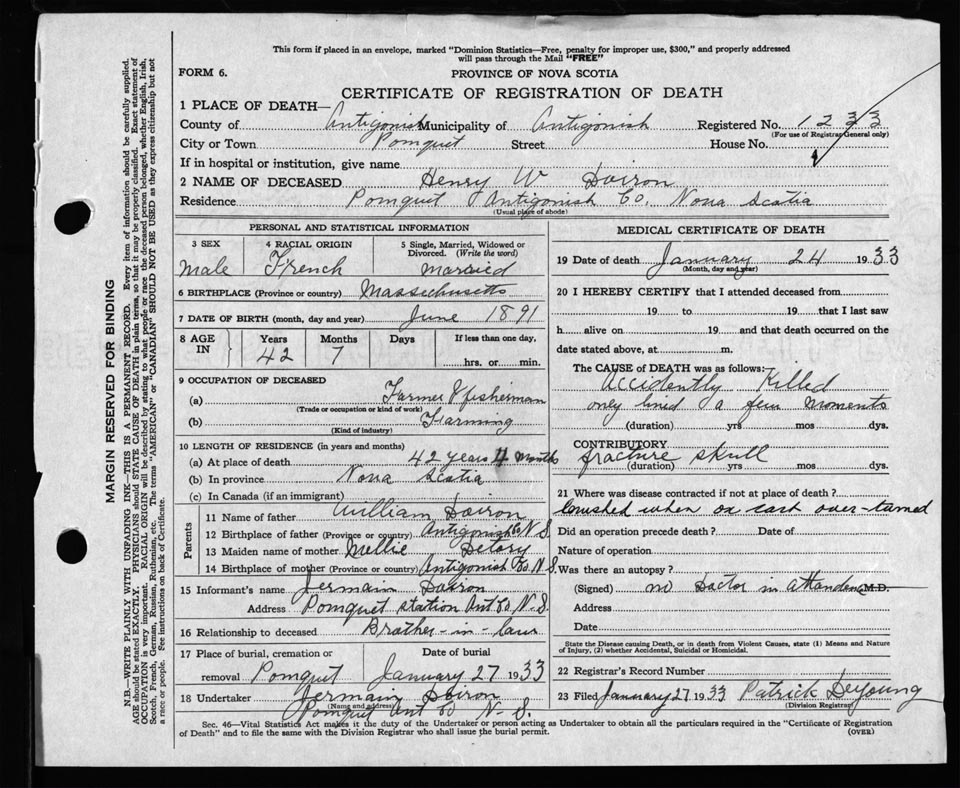 This form if placed in an envelope, marked "Dominion Statistics—Free, penalty for improper use, $300," and properly addressed
will pass through the Mail "FREE"
FORM 6.
PROVINCE OF NOVA SCOTIA
CERTIFICATE OF REGISTRATION OF DEATH
1 PLACE OF DEATH—
County of Antigonish Municipality of Antigonish Registered No. 12
(For use of Registrar General only)
City or Town Pomquet Street House No.
If in hospital or institution, give name
2 NAME OF DECEASED Henry W Doiron
Residence Pomquet Antigonish Co. Nova Scotia
(Usual place of abode)
PERSONAL AND STATISTICAL INFORMATION
3 SEX 4 RACIAL ORIGIN 5 Single, Married, Widowed or
Divorced. (Write the word)
Male French Married
6 BIRTHPLACE (Province or country) Massichusetts
7 DATE OF BIRTH (month, day and year) June 1891
8 AGE IN Years Months Days If less than one day,
42 7 hrs. or min.
9 OCCUPATION OF DECEASED
(a) Farmer & fisherman
(Trade or occupation or kind of work)
(b) Farming
(Kind of industry)
10 LENGTH OF RESIDENCE (in years and months)
(a) At place of death 42 years 4 months
(b) In province Nova Scatia
(c) In Canada (if an immigrant)
Parents
11 Name of father William Doiron
12 Birthplace of father (Province or country) Antigonish Co N S
13 Maiden name of mother Mellie
14 Birthplace of mother (Province or country) Antigonish Co N S.
15 Informant's name Jermain Doiron
Address Pomquet station Ant Co N. S.
16 Relationship to deceased Brather-in-law
17 Place of burial, cremation or Date of burial
removal Pomquet January 27 1933
18 Undertaker Jermain Doiron
(Name and address)
Pomquet Ant Co N. S.
MEDICAL CERTIFICATE OF DEATH
19 Date of death January 24 1933
(Month, day and year)
20 I HEREBY CERTIFY that I attended deceased from
19 to 19 that I last saw
h alive on 19 and that death occurred on the
date stated above, at m.
The CAUSE of DEATH was as follows:—
Accidently Killed
only lived a few moments
(duration) yrs mos dys.
CONTRIBUTORY
fracture skull
(duration) yrs mos dys.
21 Where was disease contracted if not at place of death?
crushed when ox cart over-turned
Did an operation precede death? Date of
Nature of operation
Was there an autopsy?
(Signed) no Doctor in attendance M.D.
Address
Date
State the Disease causing Death, or in death from Violent Causes, state (1) Means and Nature
of Injury, (2) whether Accidental, Suicidal or Homicidal.
22 Registrar's Record Number
23 Filed January 27 1933 Patrick DeYoung
(Division Registrar)
Sec. 46—Vital Statistics Act makes it the duty of the Undertaker or person acting as Undertaker to obtain all the particulars required in the "Certificate of Registration
of Death" and to file the same with the Division Registrar who shall issue the burial permit.
(OVER)
MARGIN RESERVED FOR BINDING
N.B.—WRITE PLAINLY WITH UNFADING INK—THIS IS A PERMANENT RECORD. Every item of information should be carefully supplied.
AGE should be stated EXACTLY. PHYSICIANS should STATE CAUSE OF DEATH in plain terms, so that it may be properly classified. Exact statement of
OCCUPATION is very important. RACIAL ORIGIN will be described by stating to what people or race the deceased person belonged, whether English, Irish,
Scotch, French, German, Russian, Ruthenian, etc. The terms "AMERICAN" or "CANADIAN" SHOULD NOT BE USED as they express citizenship but not
a race or people. See instructions on back of Certificate.